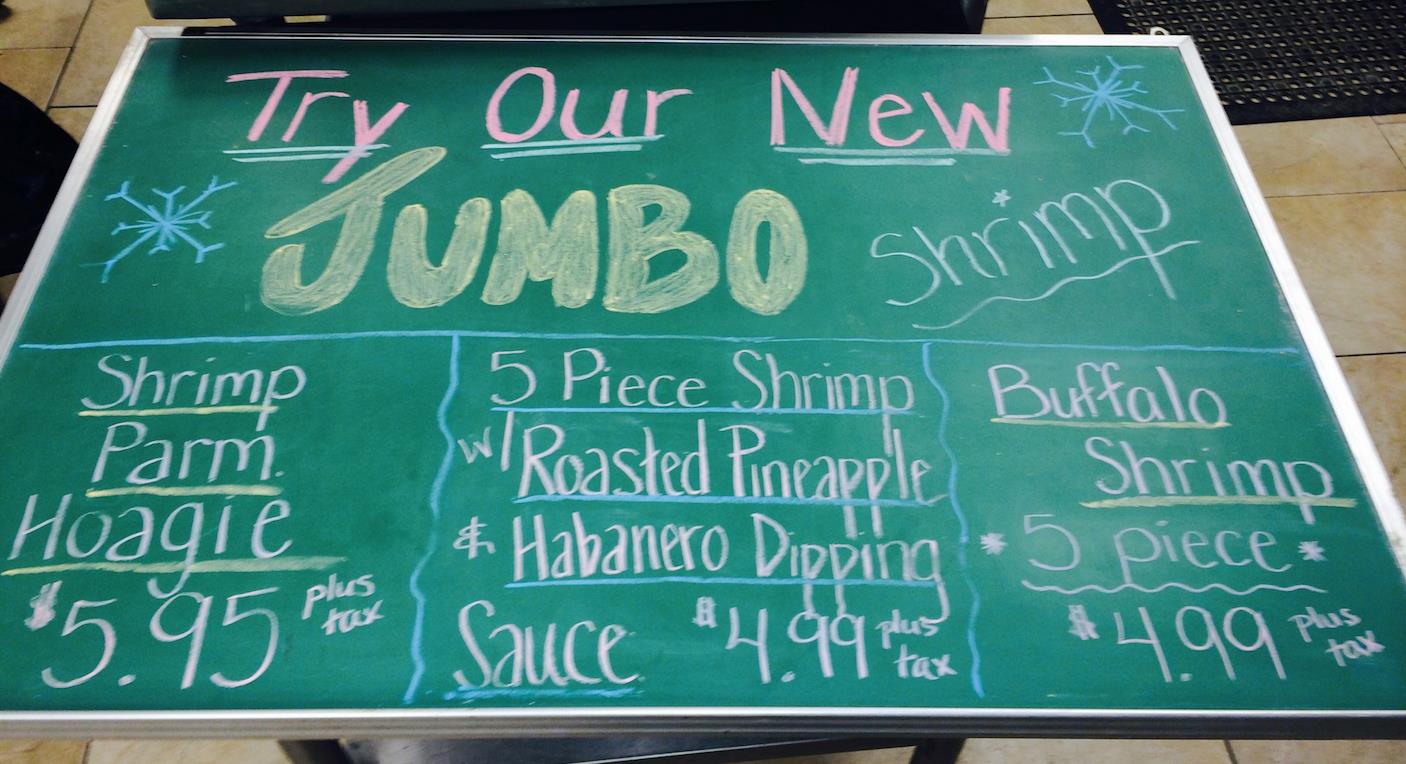 Try Our New
JUMBO Shrimp
Shrimp
Parm.
Hoagie
$5.95 plus tax
5 Piece Shrimp
w/ Roasted Pineapple
& Habanero Dipping
Sauce. $4.99 plus tax
Buffalo
Shrimp
* 5 piece *
$4.99 plus tax